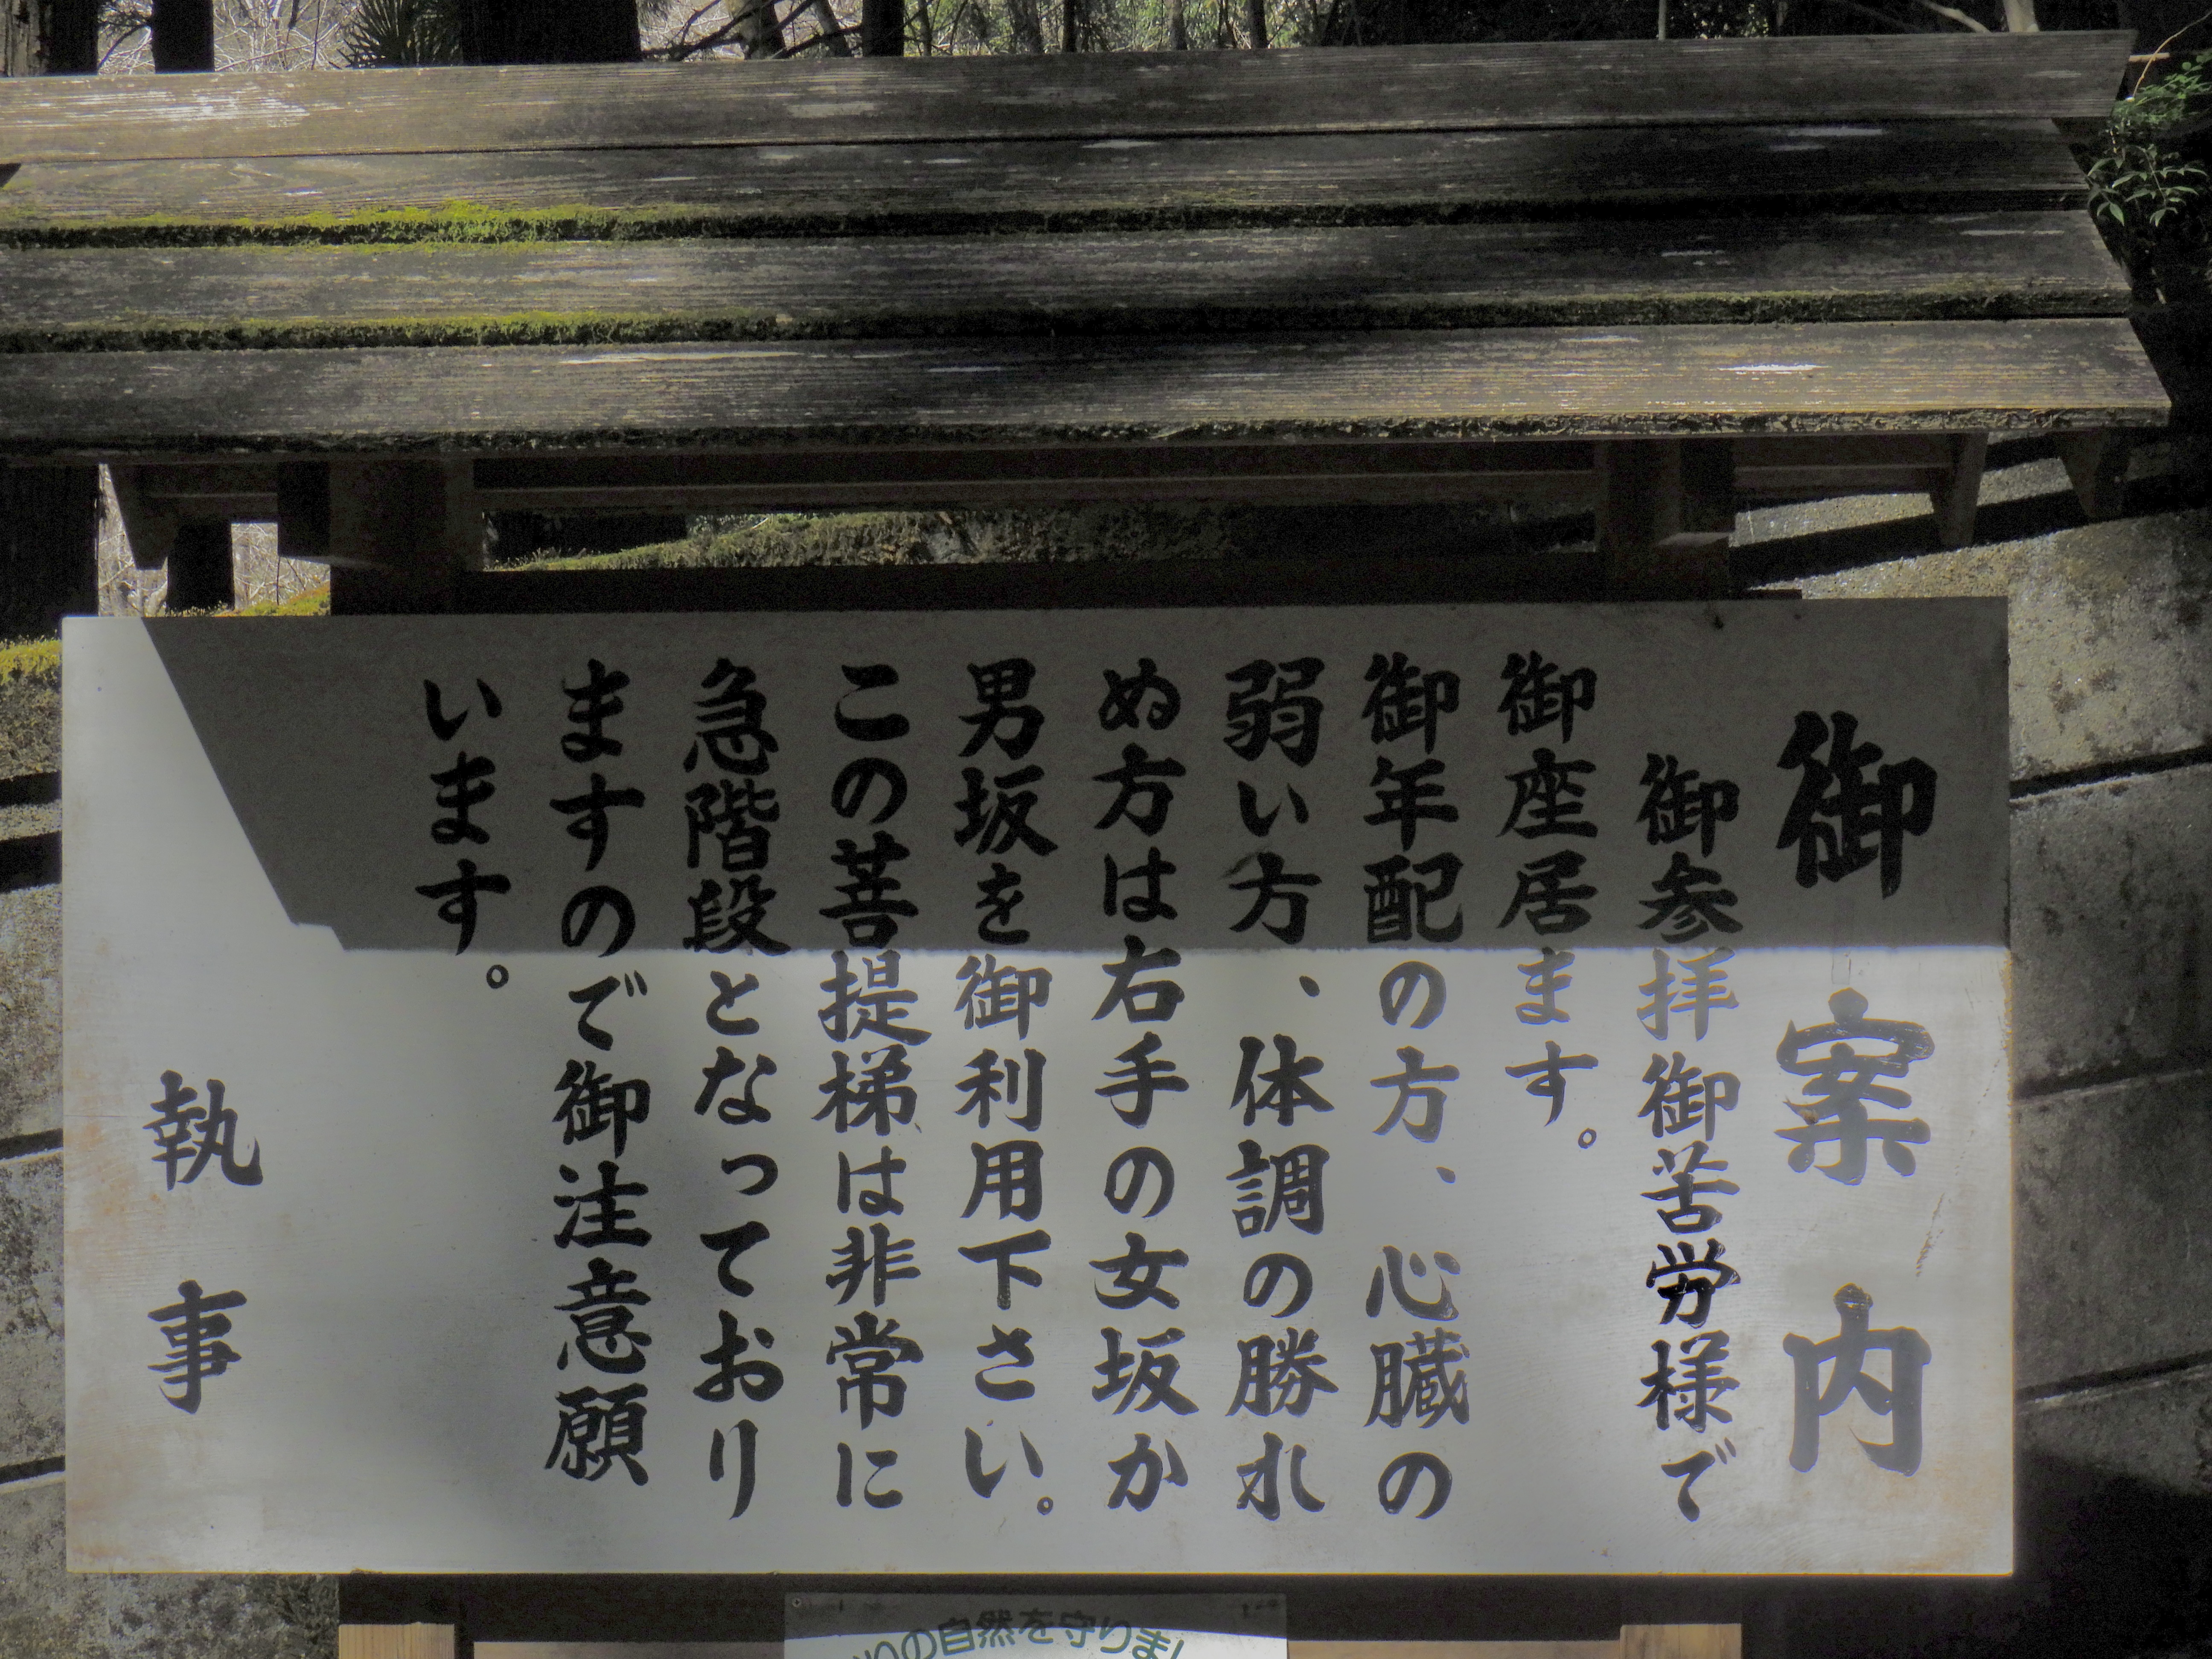 御案内
御参拝御苦労様で
御座居ます。
御年配の方、心臓の
弱い方、体調の勝れ
ぬ方は右手の女坂か
男坂を御利用下さい。
この菩提梯は非常に
急階段となっており
ますので御注意願
います。
執事
の自然を守りまし